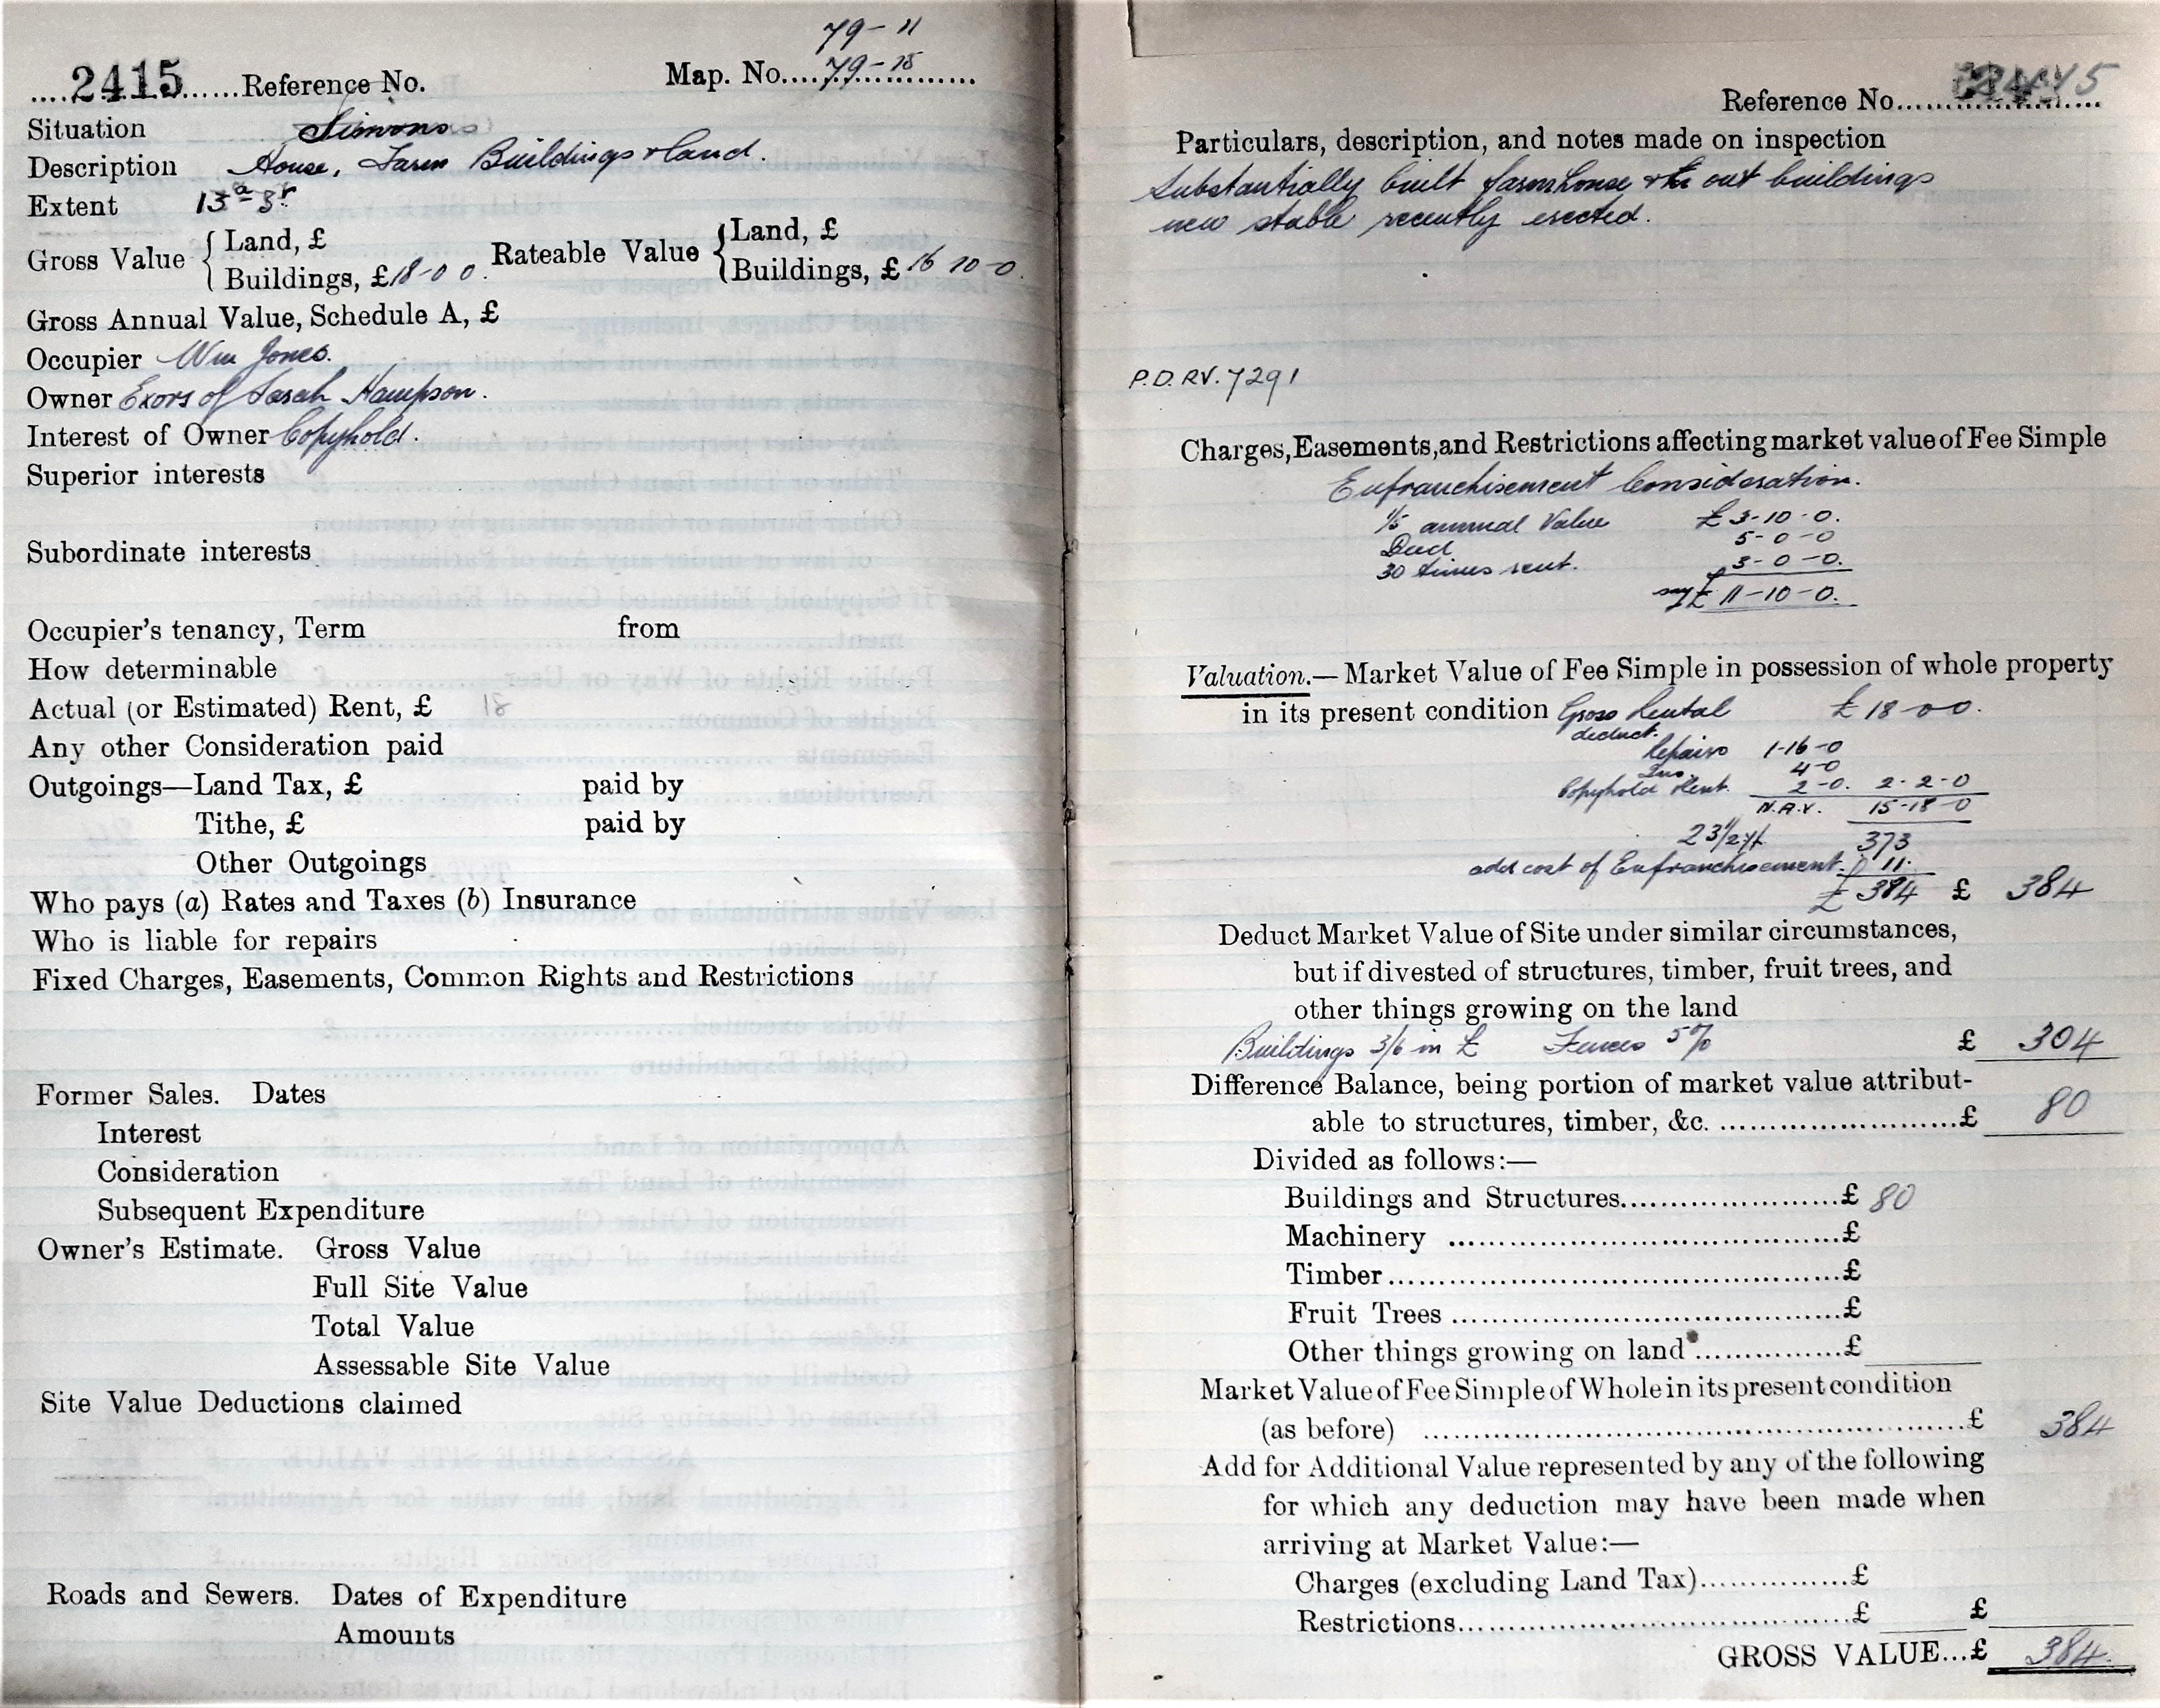 79-11
2415 Reference No. Map. No. 79-15
Situation Simons
Description House, Farm Buildings & land.
Extent 13a - 3r
Gross Value { Land, £ Rateable Value { Land, £
Buildings, £ 18-0 0. Buildings, £ 16 10-0.
Gross Annual Value, Schedule A, £
Occupier Wm Jones.
Owner Exors of Sarah Hampson.
Interest of Owner Copyhold.
Superior interests
Subordinate interests
Occupier's tenancy, Term from
How determinable
Actual (or Estimated) Rent, £ 18
Any other Consideration paid
Outgoings—Land Tax, £ paid by
Tithe, £ paid by
Other Outgoings
Who pays (a) Rates and Taxes (b) Insurance
Who is liable for repairs
Fixed Charges, Easements, Common Rights and Restrictions
Former Sales. Dates
Interest
Consideration
Subsequent Expenditure
Owner's Estimate. Gross Value
Full Site Value
Total Value
Assessable Site Value
Site Value Deductions claimed
Roads and Sewers. Dates of Expenditure
Amounts
Reference No. 2415
Particulars, description, and notes made on inspection
Substantially built farmhouse & out buildings
new stable recently erected.
P.D. RV. 7291
Charges, Easements, and Restrictions affecting market value of Fee Simple
Enfranchisement Consideration.
1/5 annual Value £ 3-10-0.
Deed 5-0-0
30 times rent. 3-0-0.
say £ 11-10-0.
Valuation.—Market Value of Fee Simple in possession of whole property
in its present condition Gross Rental £ 18-0 0.
deduct.
Repairs 1-16-0
Ins. 4-0
Copyhold Rent. 2-0. 2-2-0
N.A.V. 15-18-0
23 1/2 yp. 373
add cost of Enfranchisement. 11.
£ 384 £ 384
Deduct Market Value of Site under similar circumstances,
but if divested of structures, timber, fruit trees, and
other things growing on the land
Buildings 3/6 in £ Fences 5% £ 304
Difference Balance, being portion of market value attribut-
able to structures, timber, &c. £ 80
Divided as follows:—
Buildings and Structures £ 80
Machinery £
Timber £
Fruit Trees £
Other things growing on land £
Market Value of Fee Simple of Whole in its present condition
(as before) £ 384
Add for Additional Value represented by any of the following
for which any deduction may have been made when
arriving at Market Value:—
Charges (excluding Land Tax) £
Restrictions £ £
GROSS VALUE...£ 384.